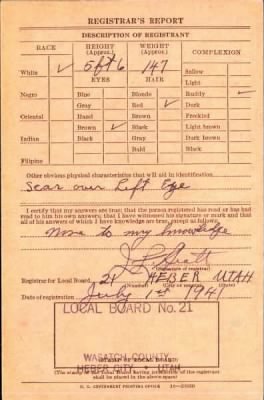 REGISTRAR'S REPORT
DESCRIPTION OF REGISTRANT
RACE HEIGHT (Approx.) WEIGHT (Approx.) COMPLEXION
White ✓ 5 ft 6 147 Sallow
EYES HAIR Light
Negro Blue Blonde Ruddy ✓
Gray Red ✓ Dark
Oriental Hazel Brown Freckled
Brown ✓ Black Light brown
Indian Black Gray Dark brown
Bald Black
Filipino
Other obvious physical characteristics that will aid in identification
Scar over Left Eye
I certify that my answers are true; that the person registered has read or has had
read to him his own answers; that I have witnessed his signature or mark and that
all of his answers of which I have knowledge are true, except as follows:
None to my knowledge
(Signature of registrar)
Registrar for Local Board 21 HEBER UTAH
Date of registration July 1st 1941
LOCAL BOARD No. 21
WASATCH COUNTY
(STAMP OF LOCAL BOARD)
HEBER CITY UTAH
(The stamp of the Local Board having jurisdiction of the registrant
shall be placed in the above space)
U. S. GOVERNMENT PRINTING OFFICE